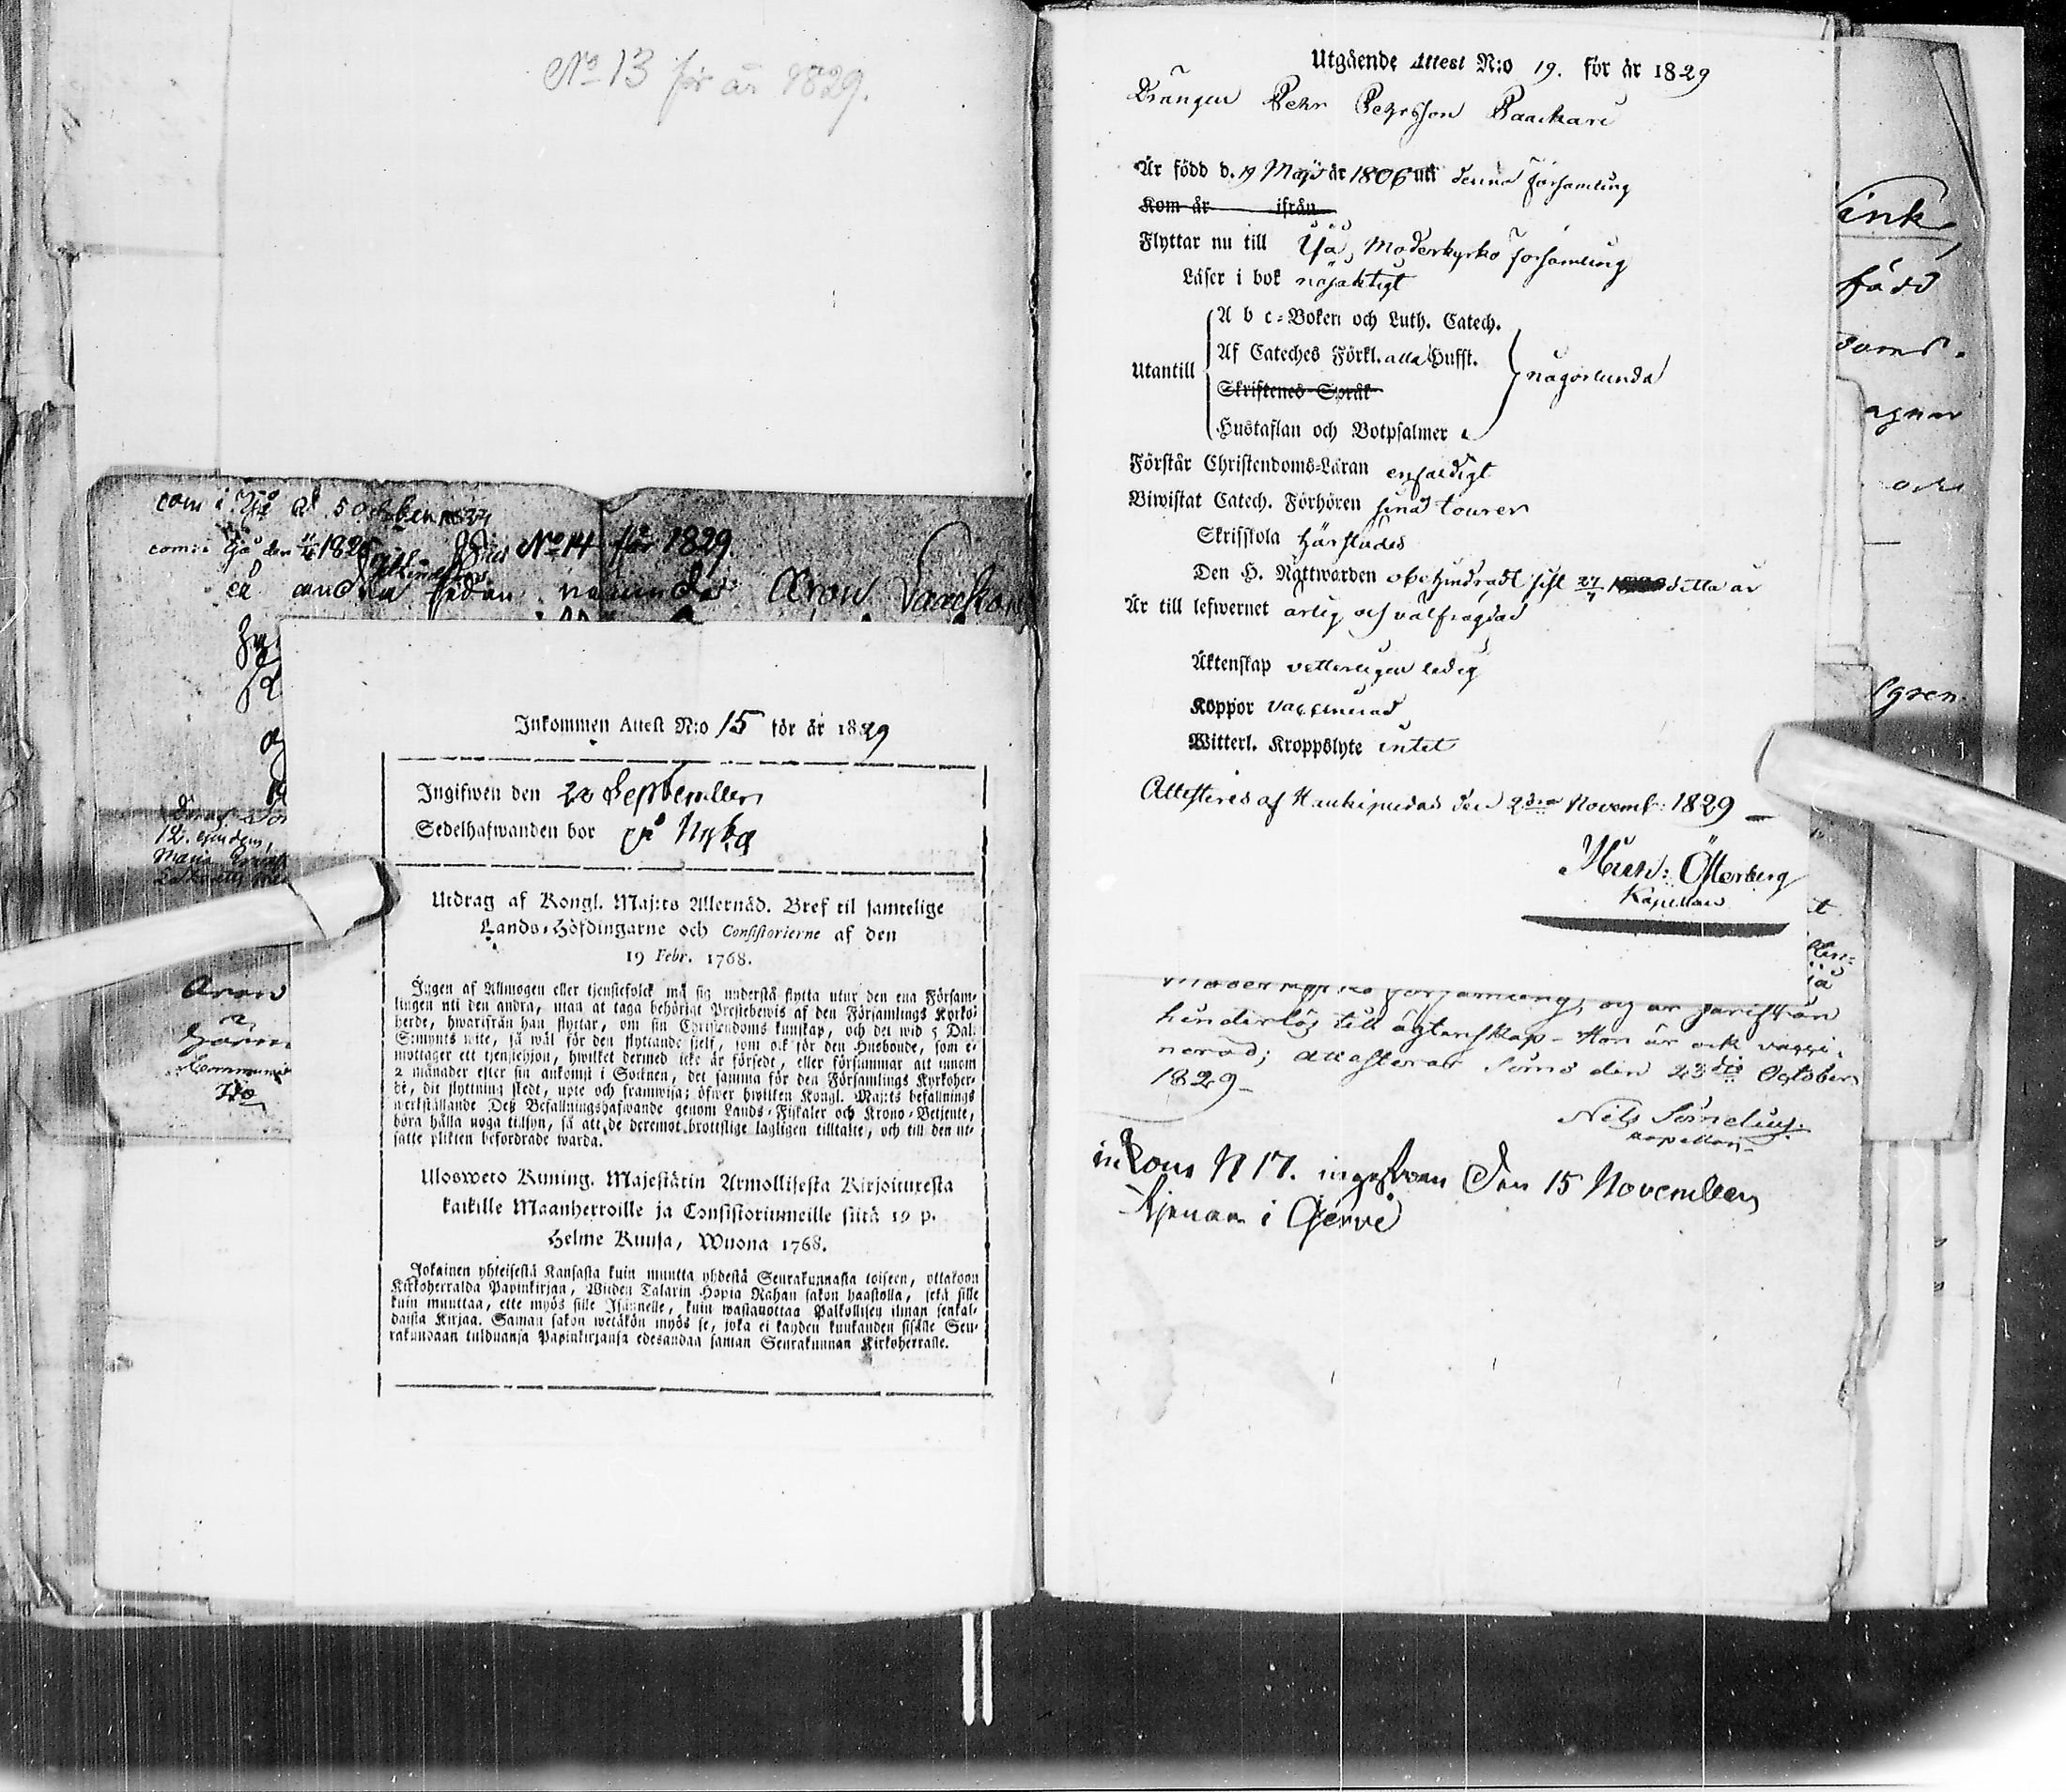 No 13 för år 1829.
com i Ijå d. 5 October 1827
com: i Ijå den 1826
No 14 för 1829.
å andra sidan Aron
Inkommen Attest N:o 15 för år 1829
Ingifwen den 20 September
Sedelhafwanden bor på Nybg
Utdrag af Kongl. Maj:ts Allernåd. Bref til samtelige
Lands-Höfdingarne och Consistorierne af den
19 Febr. 1768.
Ingen af Allmogen eller tjenstefolck må sig understå flytta utur den ena Försam-
lingen uti den andra, utan at taga behörigt Prestebewis af den Församlings Kyrko-
herde, hwarifrån han flyttar, om sin Christendoms kunskap, och det wid 5 Dal:
S:mynts wite, så wäl för den flyttande sielf, som ock för den Husbonde, som e-
mottager ett tjenstehjon, hwilket dermed icke är försedt, eller försummar att innom
2 månader efter sin ankomst i Socknen, det samma för den Församlings Kyrkoher-
de, dit flyttning skedt, upte och framwisa; öfwer hwilken Kongl. Maj:ts befallnings
werkställande Deß Befallningshafwande genom Lands-Fiskaler och Krono-Betjente,
böra hålla noga tillsyn, så att de deremot brottslige lagligen tilltalte, och till den ut-
satte plikten befordrade warda.
Ulosweto Kuning. Majestätin Armollisesta Kirjoituxesta
kaikille Maanherroille ja Consistoriumeille siitä 19 p.
Helme Kuusa, Wuona 1768.
Jokainen yhteisestä Kansasta kuin muutta yhdestä Seurakunnasta toiseen, ottakoon
Kirkoherralda Papinkirjan, Wiiden Talarin Hopia Rahan sakon haastolla, sekä sille
kuin muuttaa, ette myös sille Isännelle, kuin wastauottaa Palkollisen ilman senkal-
daista Kirjaa. Saman sakon wetäkön myös se, joka ei kahden kuukauden sisälle Seu-
rakundaan tulduansa Papinkirjansa edesandaa saman Seurakunnan Kirkoherralle.
Aron
Utgående Attest N:o 19. för år 1829
Drängen Pehr Pehrsson Paackari
Är född d. 19 Maji år 1806 uti denna församling
Kom år ifrån
Flyttar nu till Ijå Moderkyrko församling
Läser i bok nöjaktigt
A b c-Boken och Luth. Catech.
Af Cateches Förkl. alla Hufst.
Utantill
någorlunda
Skriftenes Språk
Hustaflan och Botpsalmer
Förstår Christendoms-Läran enfaldigt
Biwistat Catech. Förhören sina tourer
Skrifskola härstädes
Den H. Nattwarden obehindradt sist 27/9 detta år
Är till lefwernet ärlig och välfrägdad
Äktenskap vetterligen ledig
Koppor vaccinerad
Witterl. Kroppslyte intet
Attesteras af Haukipudas den 2dra Novemb: 1829
Österberg
Kapellan
Moderkyrko församling, och är härifrån
hinderlös till ägtenskap - Hon är ock vacci-
nerad; attesterar Simo den 23dje October
1829 -
Nils Simelius.
kapellan
inkom N 17. ingifven Den 15 November
tjenar i Gervi
ink
född
agnar
och
gren